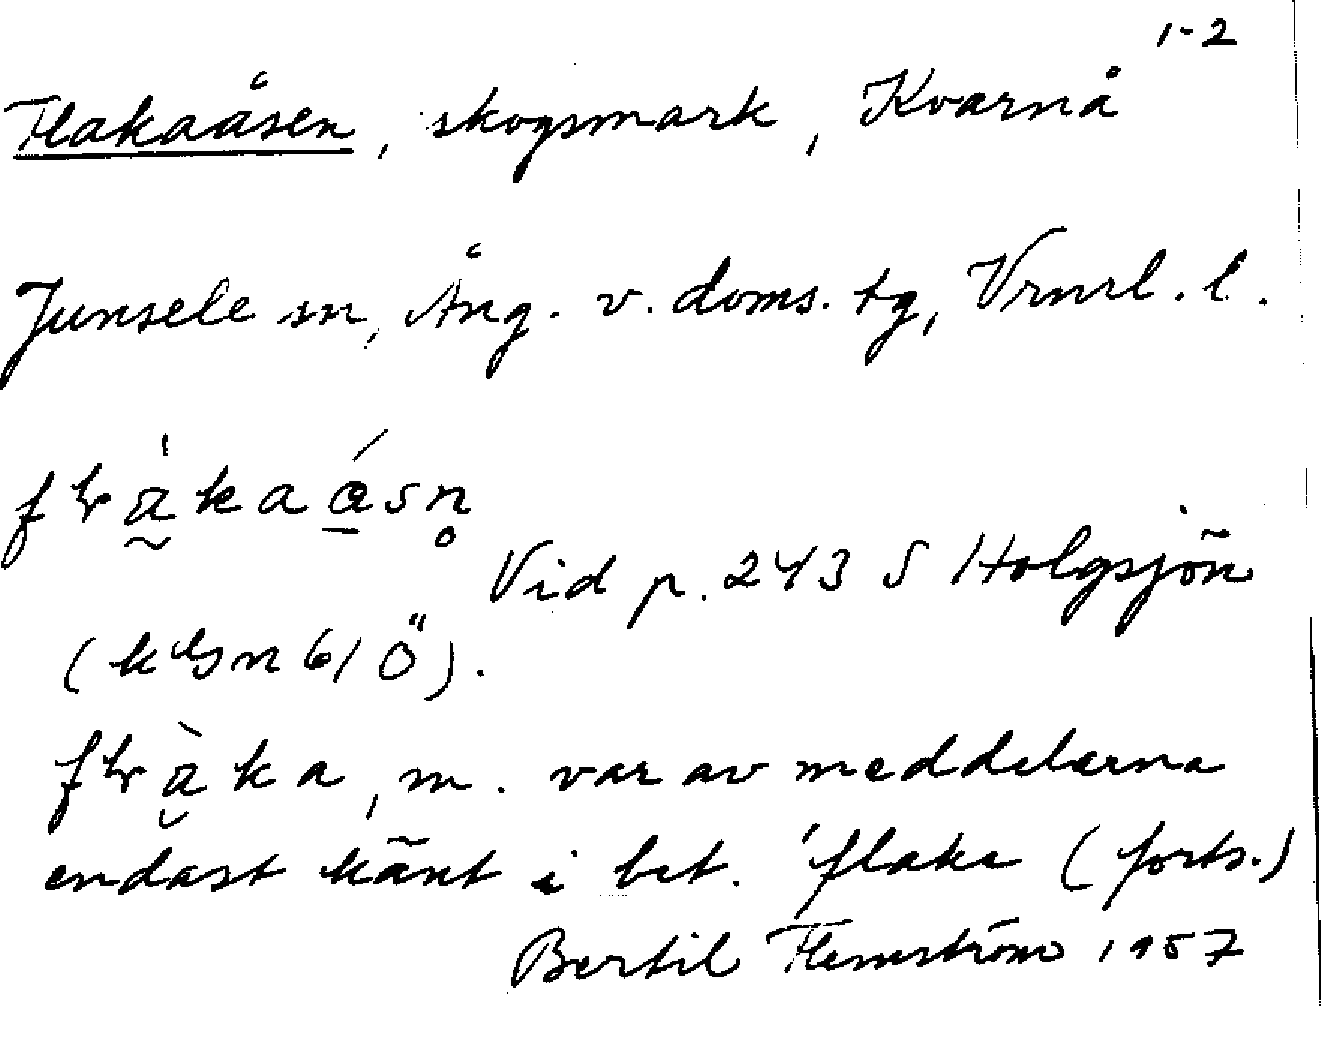 1-2
Flakaåsen, skogsmark, Kvarnå
Junsele sn, Ång. v. doms. tg, Vrnrl. l.
Vid p. 243 S Holgsjön
61 Ö).
m. var av meddelarna
endast känt i bet. 'flake (forts.)
Bertil Flemström 1957